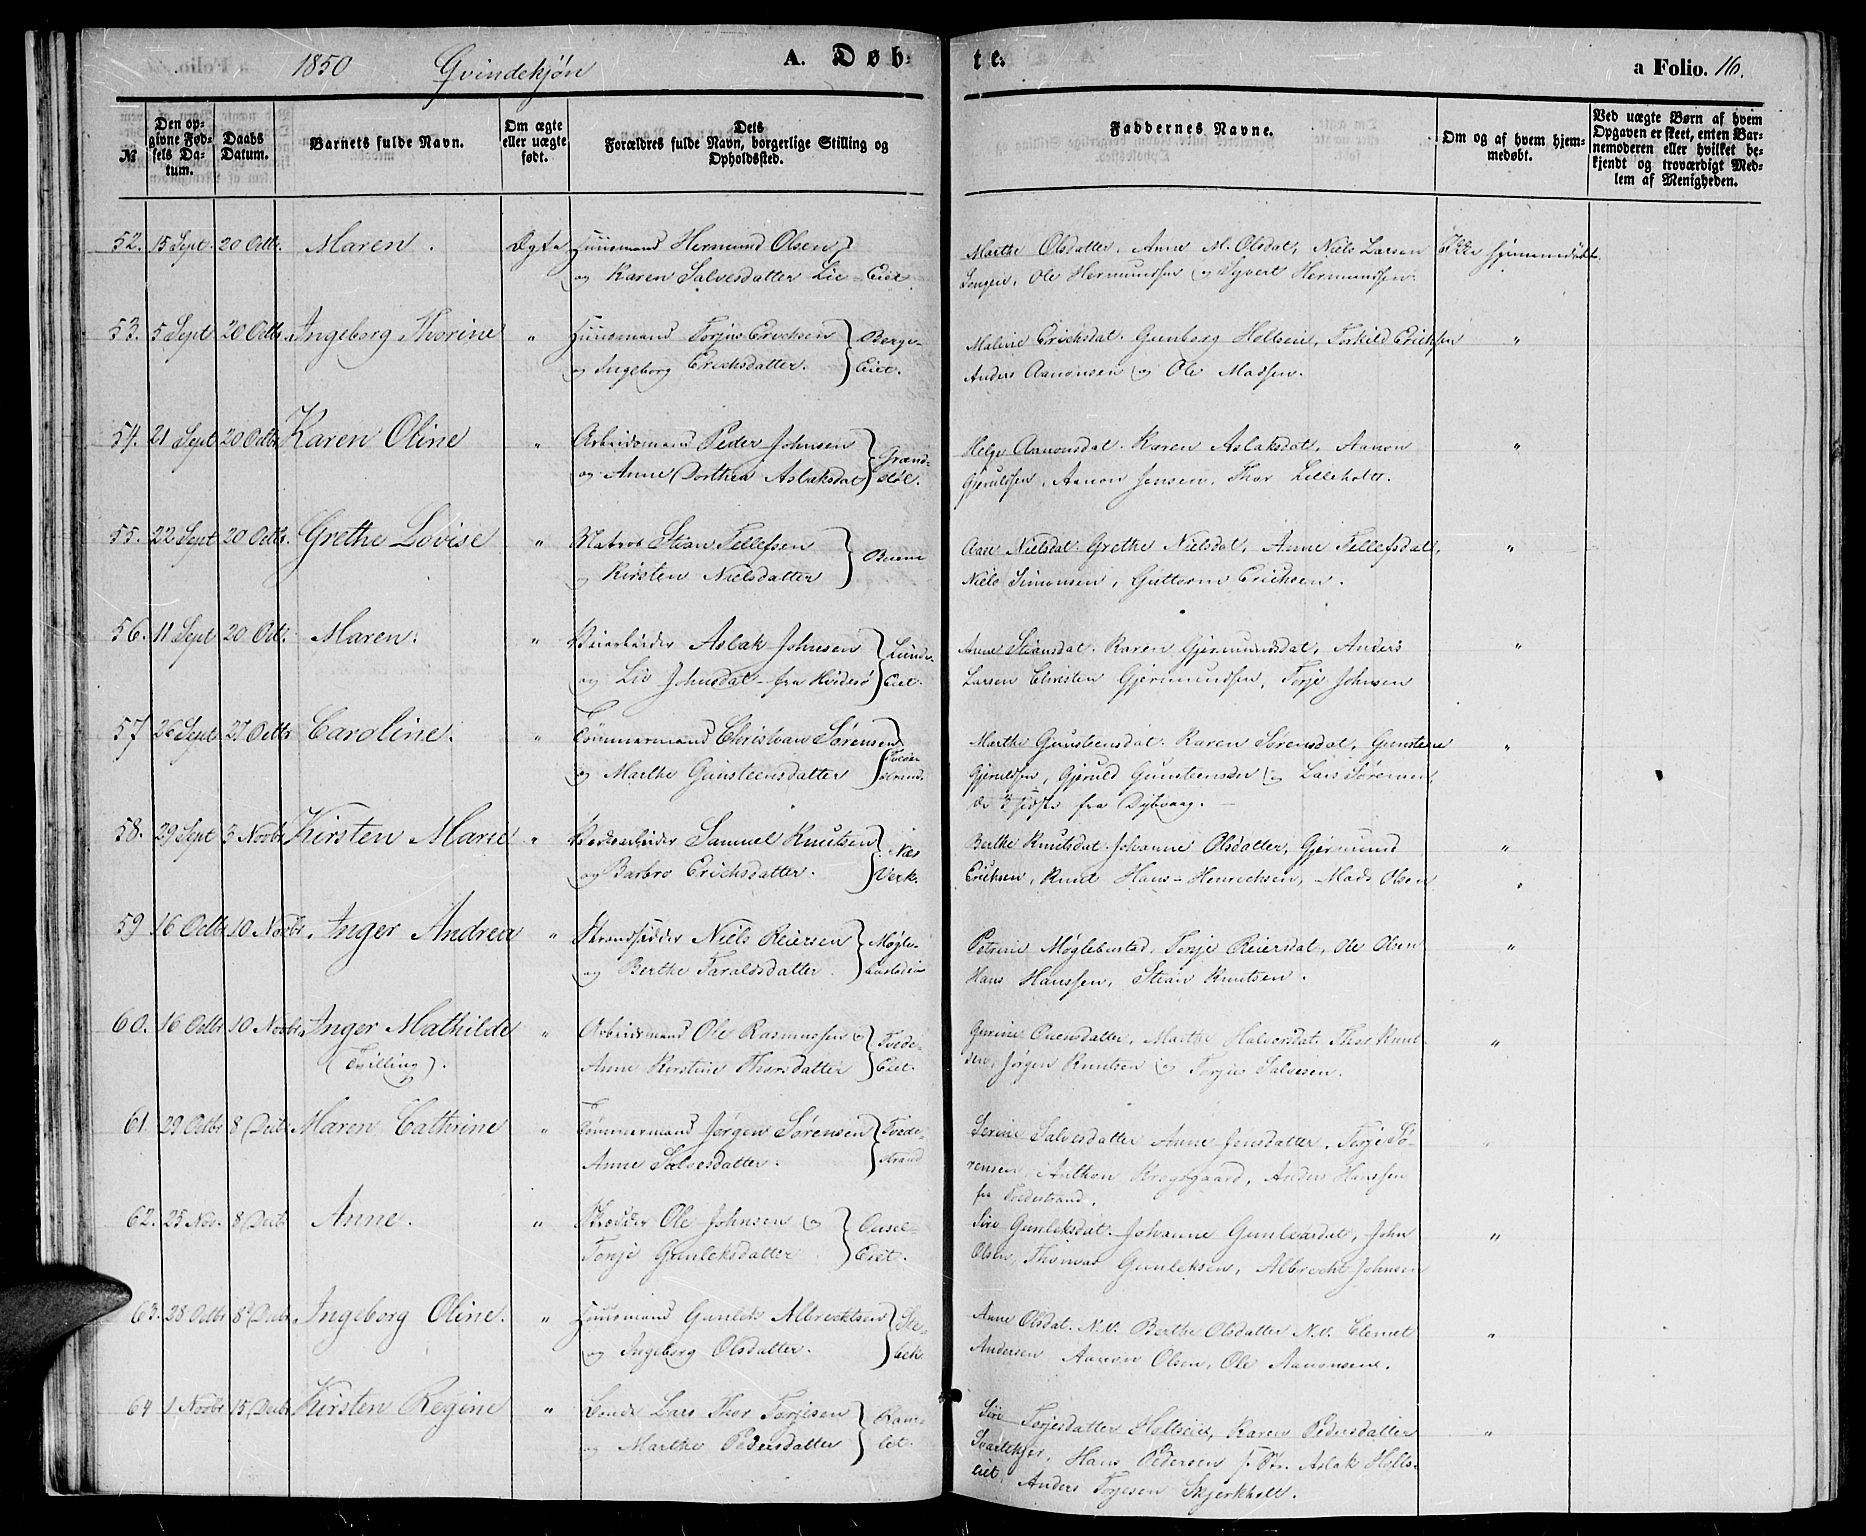 1850 Qvindekjøn A. Døb-
te. a Folio. 16.
№
Den op-
givne Fød-
sels Da-
tum.
Daabs
Datum.
Barnets fulde Navn.
Om ægte
eller uægte
født.
Dets
Forældres fulde Navn, borgerlige Stilling og
Opholdssted.
Faddernes Navne.
Om og af hvem hjem-
medøbt.
Ved uægte Børn af hvem
Opgaven er skeet, enten Bar-
nemoderen eller hvilket be-
kjendt og troværdigt Med-
lem af Menigheden.
52. 15 Sept. 20 Octb. Maren. Ægte Huusmand Hermund Olsen
og Karen Salvesdatter Lie-Eiet
Marthe Olsdatter, Anne M. Olsdat, Niels Larsen
Songen, Ole Hermundsen og Syvert Hermundsen.
Ikke hjemmedøbt.
53. 5 Sept 20 Octb. Ingeborg Thorine " Huusmand Torjus Erichsen
og Ingeborg Erichsdatter. Berge-
Eiet.
Malene Erichsdat. Gunborg Holtseie, Torkild Erichsen "
Anders Aanonsen og Ole Madsen.
54. 21 Sept 20 Octb Karen Oline " Arbeidsmand Peder Johnsen
og Anne Dorthea Aslaksdat Grænd-
støl.
Helge Aanonsdat. Karen Aslaksdat, Aanon "
Gjeruldsen, Aanon Jensen, Thor Lilleholt.
55. 22 Sept 20 Octb. Grethe Lovise " Matros Stian Tellefsen
og Kirsten Nielsdatter
Aase Nielsdat. Grethe Nielsdat, Anne Tellefsdat, "
Niels Simonsen, Guttorm Erichsen.
56. 11 Sept 20 Oct. Maren. " Veiarbeider Aslak Johnsen
og Liv Johnsdat - fra Hvidesø Lunde-
Eiet.
Anne Stiansdat. Karen Gjermundsdat, Anders "
Larsen Christen Gjermundsen, Torje Johnsen
57 26 Sept 27 Octb Caroline. " Tømmermand Christian Sørensen
og Marthe Gunsteensdatter Tvede-
strand.
Marthe Gunsteensdat. Karen Sørensdat, Gunsteen "
Gjeruldsen, Gjeruld Gunsteensen og Lars Sørensen
de 3 sidste fra Dybvaag.
58. 29 Sept 3 Novbr Kirsten Marie " Samuel Knutsen
og Barbro Erichsdatter. Næs
Verk.
Berthe Knutsdat. Johanne Olsdatter, Gjermund "
Erichsen, Knut Hans-Henrichsen, Mads Olsen "
59 16 Octbr 10 Novbr. Inger Andrea " Strandsidder Niels Reiersen
og Berthe Taraldsdatter. Møgle-
Petrine Møglebustad, Torje Reiersdat, Ole Olsen "
Hans Hanssen, Stian Knutsen.
60. 16 Octbr 10 Novbr. Inger Mathilde " Arbeidsmand Ole Rasmussen og
(Tvilling). Anne Kirstine Thorsdatter Tvede-
Eiet.
Gurine Ouensdatter, Marthe Halvorsdat. Thor Knut- "
sen, Jørgen Knutsen og Torjus Salvesen.
61. 29 Octbr 8 Decb Maren Cathrine " Tømmermand Jørgen Sørensen
Anne Salvesdatter. Tvede-
strand
Serine Salvesdatter Anne Jensdatter, Torje Sø- "
rensen, Anthon Krogsgaard, Anders Hanssen
fra Tvedestrand.
62. 25 Nov. 8 Decb Anne. " Skrædder Ole Johnsen og
Torje Gunleksdatter Ousel-
Eiet.
Siri Gunleksdat. Johanne Gunleksdat, John "
Olsen, Thomas Gunleksen, Albrecht Johnsen
63. 28 Octbr 8 Decbr. Ingeborg Oline. " Huusmand Gunlek Albrecktsen
og Ingeborg Olsdatter. Ske-
bek.
Anne Olsdat. N.V. Berthe Olsdatter N.V. Clemet "
Andersen Aanon Olsen, Ole Aanonsens.
64 1 Novbr 15 Decbr Kirsten Regine " Bonde Lars Thor Torjesen
og Marthe Pedersdatter
Siri Torjesdatter Holtseiet, Karen Pedersdatter "
Svartekjer, Hans Pedersen Aslak Holts-
eiet, Anders Torjesen Skjerkholt.